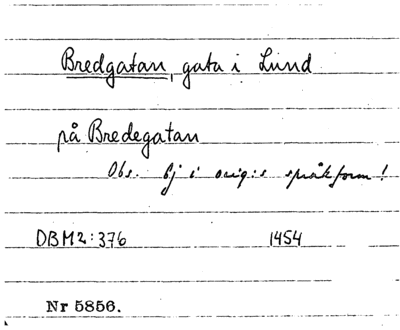 Bredgatan, gata i Lund
på Bredegatan
Obs. Ej i orig:s språkform!
DBM2:376 1454
Nr 5856.